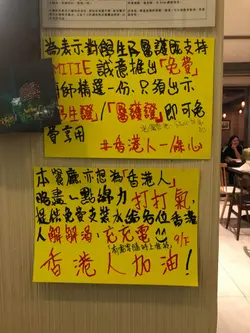 為表示對學生及醫護既支持
MITIE 誠意推出「免費」
廚師精選一份，只須出示
「學生證」/「醫護證」即可免
費享用
#香港人一條心
本餐廳亦想為「香港人」
略盡一點綿力，打打氣，
提供免費支裝水給各位香港
人解解渴，充充電
香港人加油！